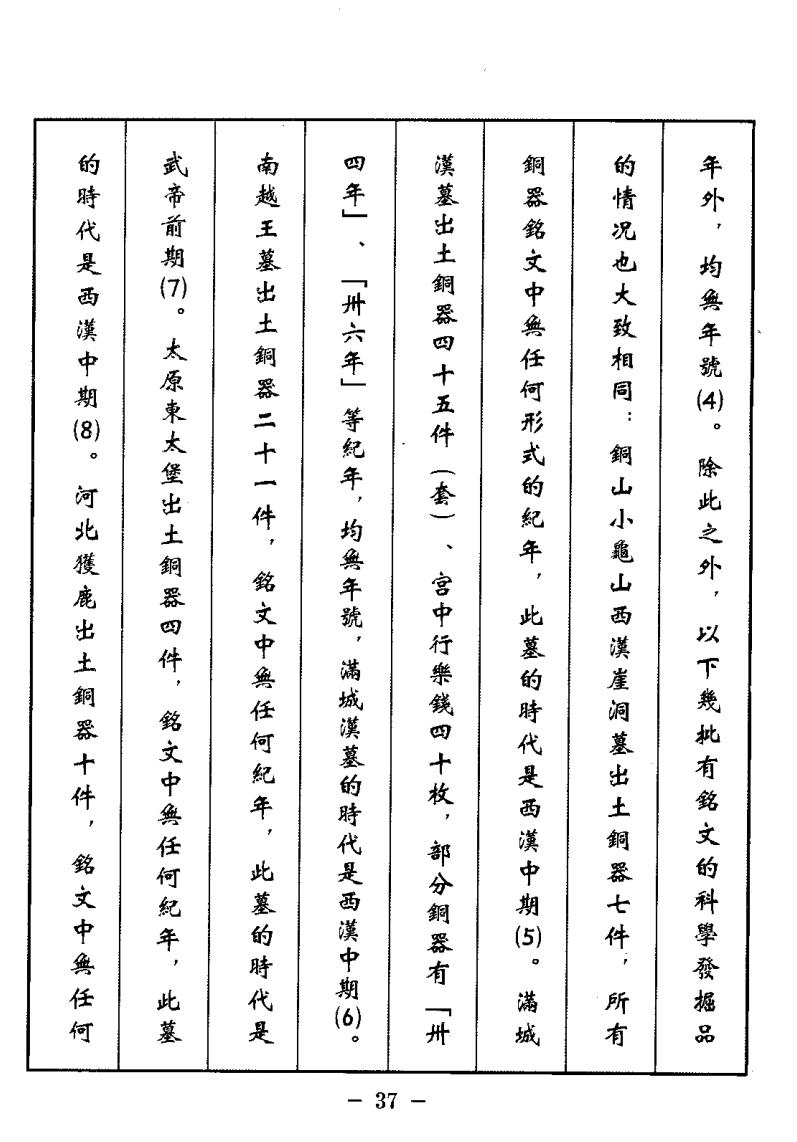 年外，均無年號(4)。除此之外，以下幾批有銘文的科學發掘品
的情況也大致相同：銅山小龜山西漢崖洞墓出土銅器七件，所有
銅器銘文中無任何形式的紀年，此墓的時代是西漢中期(5)。滿城
漢墓出土銅器四十五件（套）、宮中行樂錢四十枚，部分銅器有「卅
四年」、「卅六年」等紀年，均無年號，滿城漢墓的時代是西漢中期(6)。
南越王墓出土銅器二十一件，銘文中無任何紀年，此墓的時代是
武帝前期(7)。太原東太堡出土銅器四件，銘文中無任何紀年，此墓
的時代是西漢中期(8)。河北獲鹿出土銅器十件，銘文中無任何
- 37 -